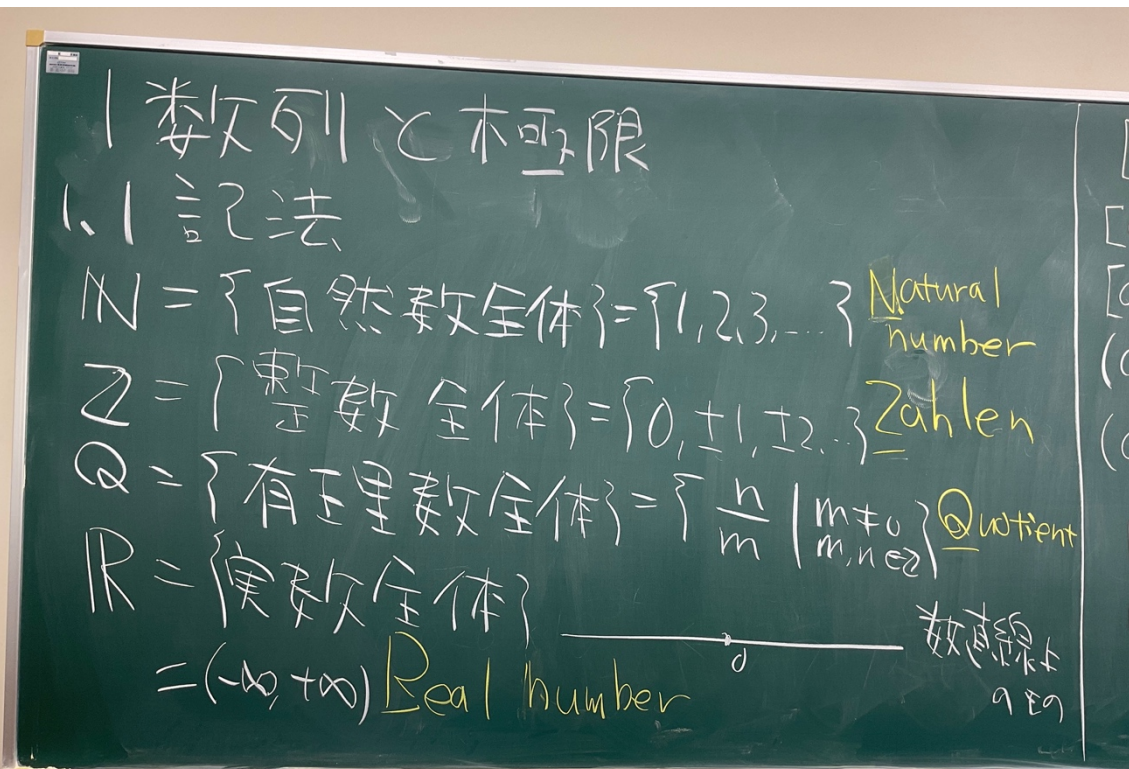 1 数列と極限
1.1 記法
ℕ = {自然数全体} = {1, 2, 3, ...} Natural number
ℤ = {整数全体} = {0, ±1, ±2...} Zahlen
ℚ = {有理数全体} = { n/m | m≠0 m,n∈ℤ } Quotient
ℝ = {実数全体}
0
数直線上
のもの
= (-∞, +∞) Real number